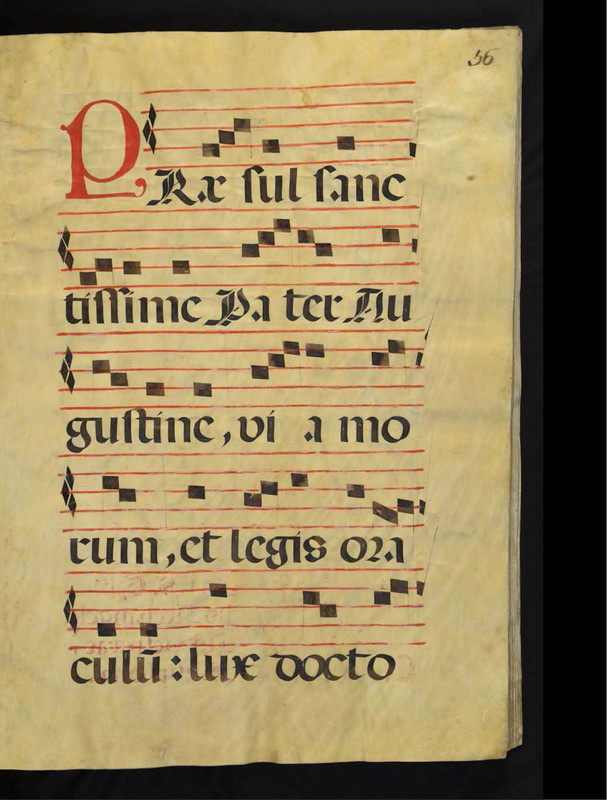 56
PRæ sul sanc
tissime Pa ter Au
gustine, vi a mo
rum, et legis ora
culū: lux docto